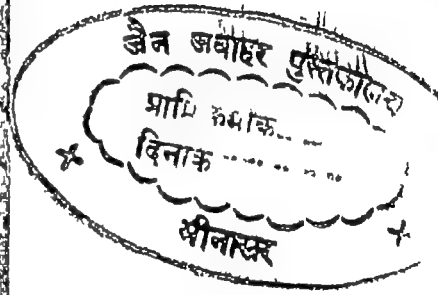 जैन जवाहर पुस्तकालय
प्राप्ति क्रमांक.....
दिनाक ..............
भीनासर